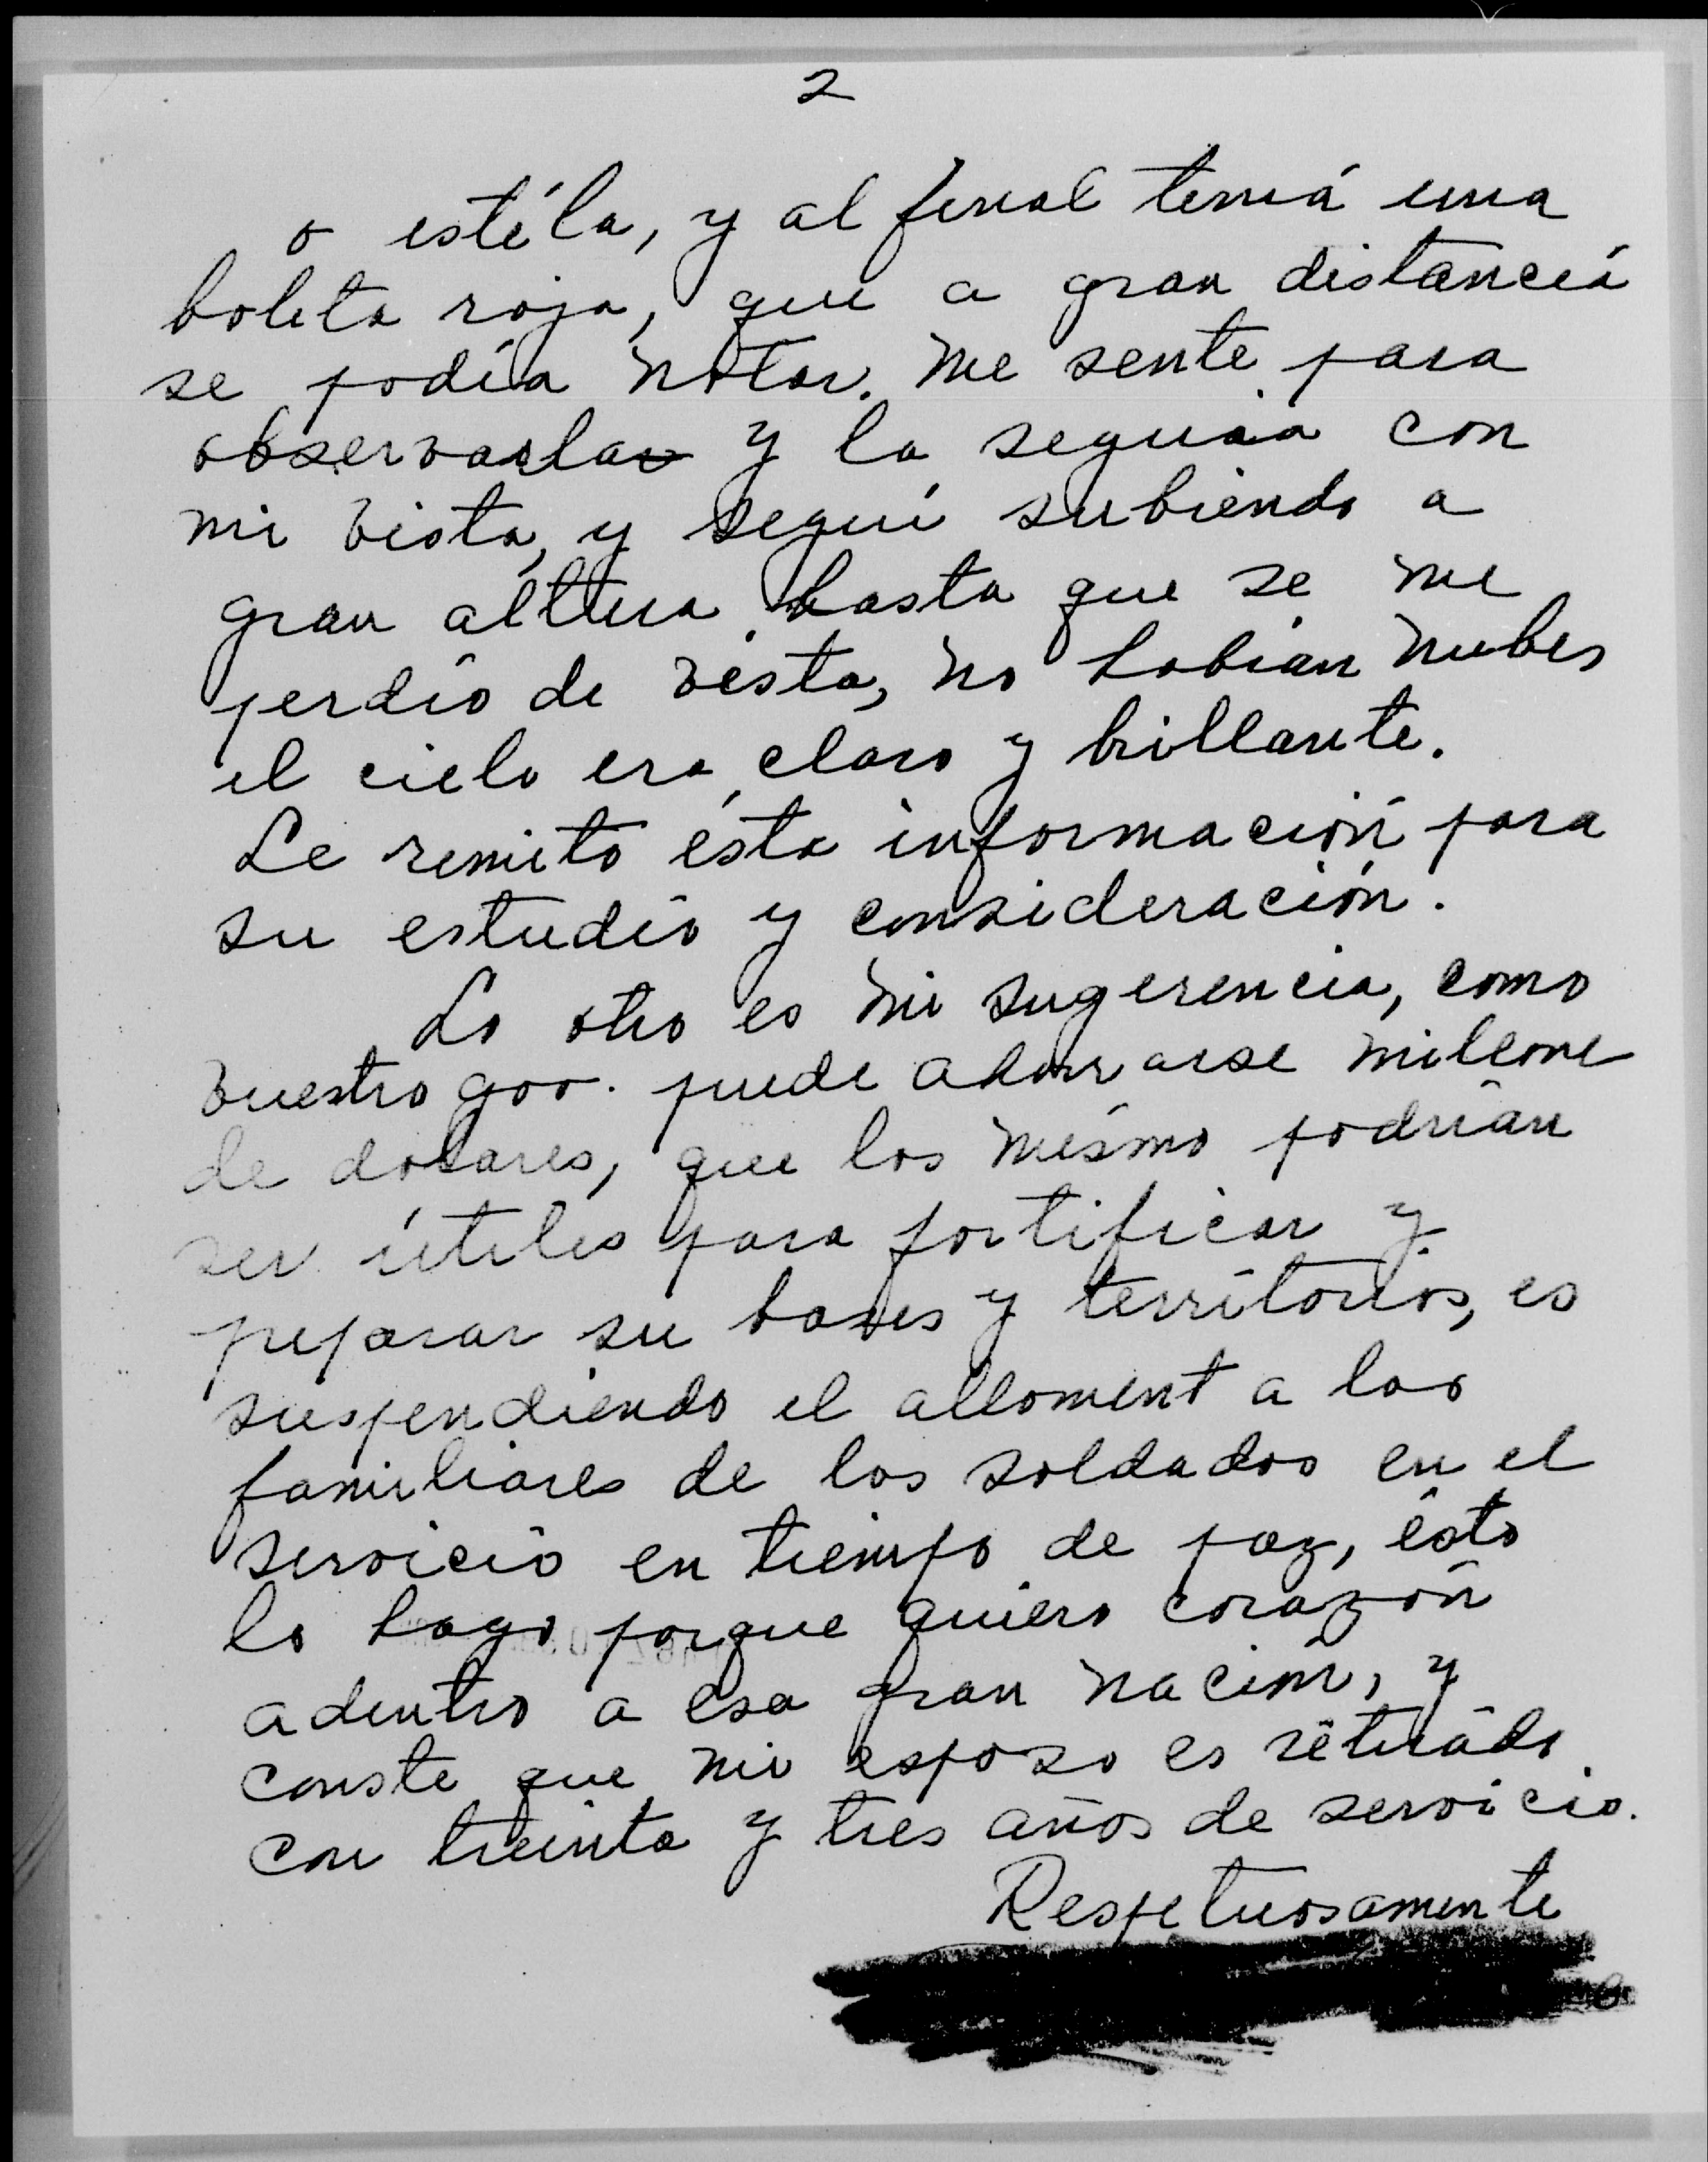 2
o estéla, y al final tenía una
boleta roja, que a gran distancia
se podía notar. Me senté para
observarla y la seguía con
mi vista, y seguí subiendo a
gran altura hasta que se me
perdío de vista, no habían nubes
el cielo era claro y brillante.
Le remito esta información para
su estudio y consideración.
Lo otro es mi sugerencia, como
vuestro gov. puede ahorrarse millone
de dolares, que los mismo podrían
ser útiles para fortificar y
preparar su bases y territorios, es
suspendiendo el alloment a los
familiares de los soldados en el
servicio en tiempo de paz, ésto
lo hago porque quiero corazón
adentro a esa gran nación, y
conste que mi esposo es retirado
con treinta y tres años de servicio.
Respetuosamente